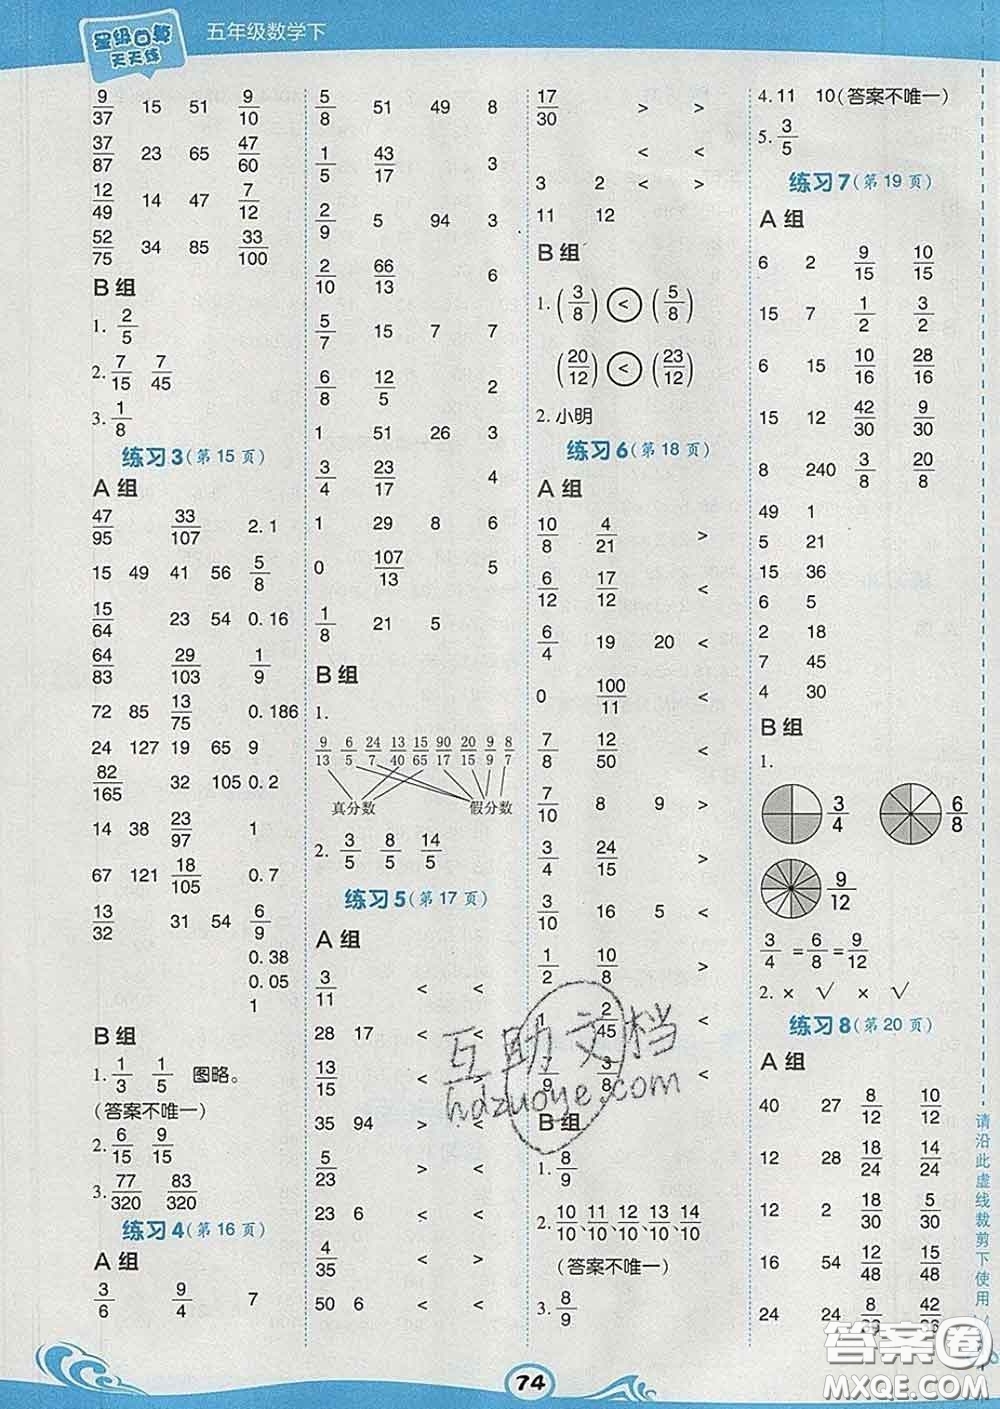 星级口算
天天练
五年级数学下
9/37 15 51 9/10
37/87 23 65 47/60
12/49 14 47 7/12
52/75 34 85 33/100
B 组
1. 2/5
2. 7/15 7/45
3. 1/8
练习3(第15页)
A 组
47/95 33/107 2.1
15 49 41 56 5/8
15/64 23 54 0.16
64/83 29/103 1/9
72 85 13/75 0.186
24 127 19 65 9
82/165 32 105 0.2
14 38 23/97 1
67 121 18/105 0.7
13/32 31 54 6/9
0.38
0.05
1
B 组
1. 1/3 1/5 图略。
(答案不唯一)
2. 6/15 9/15
3. 77/320 83/320
练习4(第16页)
A 组
3/6 9/4 7
5/8 51 49 8
1/5 43/17 3
2/9 5 94 3
2/10 66/13 6
5/7 15 7 7
6/8 12/5 2
1 51 26 3
3/4 23/17 4
1 29 8 6
0 107/13 5
1/8 21 5
B 组
1.
9/13 6/5 24/7 13/40 15/65 90/17 20/15 9/9 8/7
真分数 假分数
2. 3/5 8/5 14/5
练习5(第17页)
A 组
3/11 < <
28 17 < <
13/15 < <
35 94 > >
5/23 > <
23 6 < <
4/35 < <
50 6 < <
17/30 > >
< <
3 2 < >
11 12
B 组
1. (3/8) < (5/8)
(20/12) < (23/12)
2. 小明
练习6(第18页)
A 组
10/8 4/21 >
6/12 17/12 <
6/4 19 20 <
0 100/11 <
7/8 12/50 <
7/10 8 9 >
3/4 24/15 >
3/10 16 5 <
1/2 10/8 >
1 2/45 <
7/9 3/8 <
B 组
1. 8/9
2. 10/10、11/10、12/10、13/10、14/10
(答案不唯一)
3. 8/9
4. 11 10(答案不唯一)
5. 3/5
练习7(第19页)
A 组
6 2 9/15 10/15
15 7 1/2 3/2
6 15 10/16 28/16
15 12 42/30 9/30
8 240 3/8 20/8
49 1
5 21
15 36
6 5
2 18
7 45
4 30
B 组
1.
3/4 6/8
9/12
3/4 = 6/8 = 9/12
2. × √ × √
练习8(第20页)
A 组
40 27 8/12 10/12
12 28 18/24 14/24
12 2 18/30 5/30
16 54 12/48 15/48
24 24
请沿此虚线裁剪下使用
74
互助文档
hdzuoye.com
答案圈
MXQE.COM